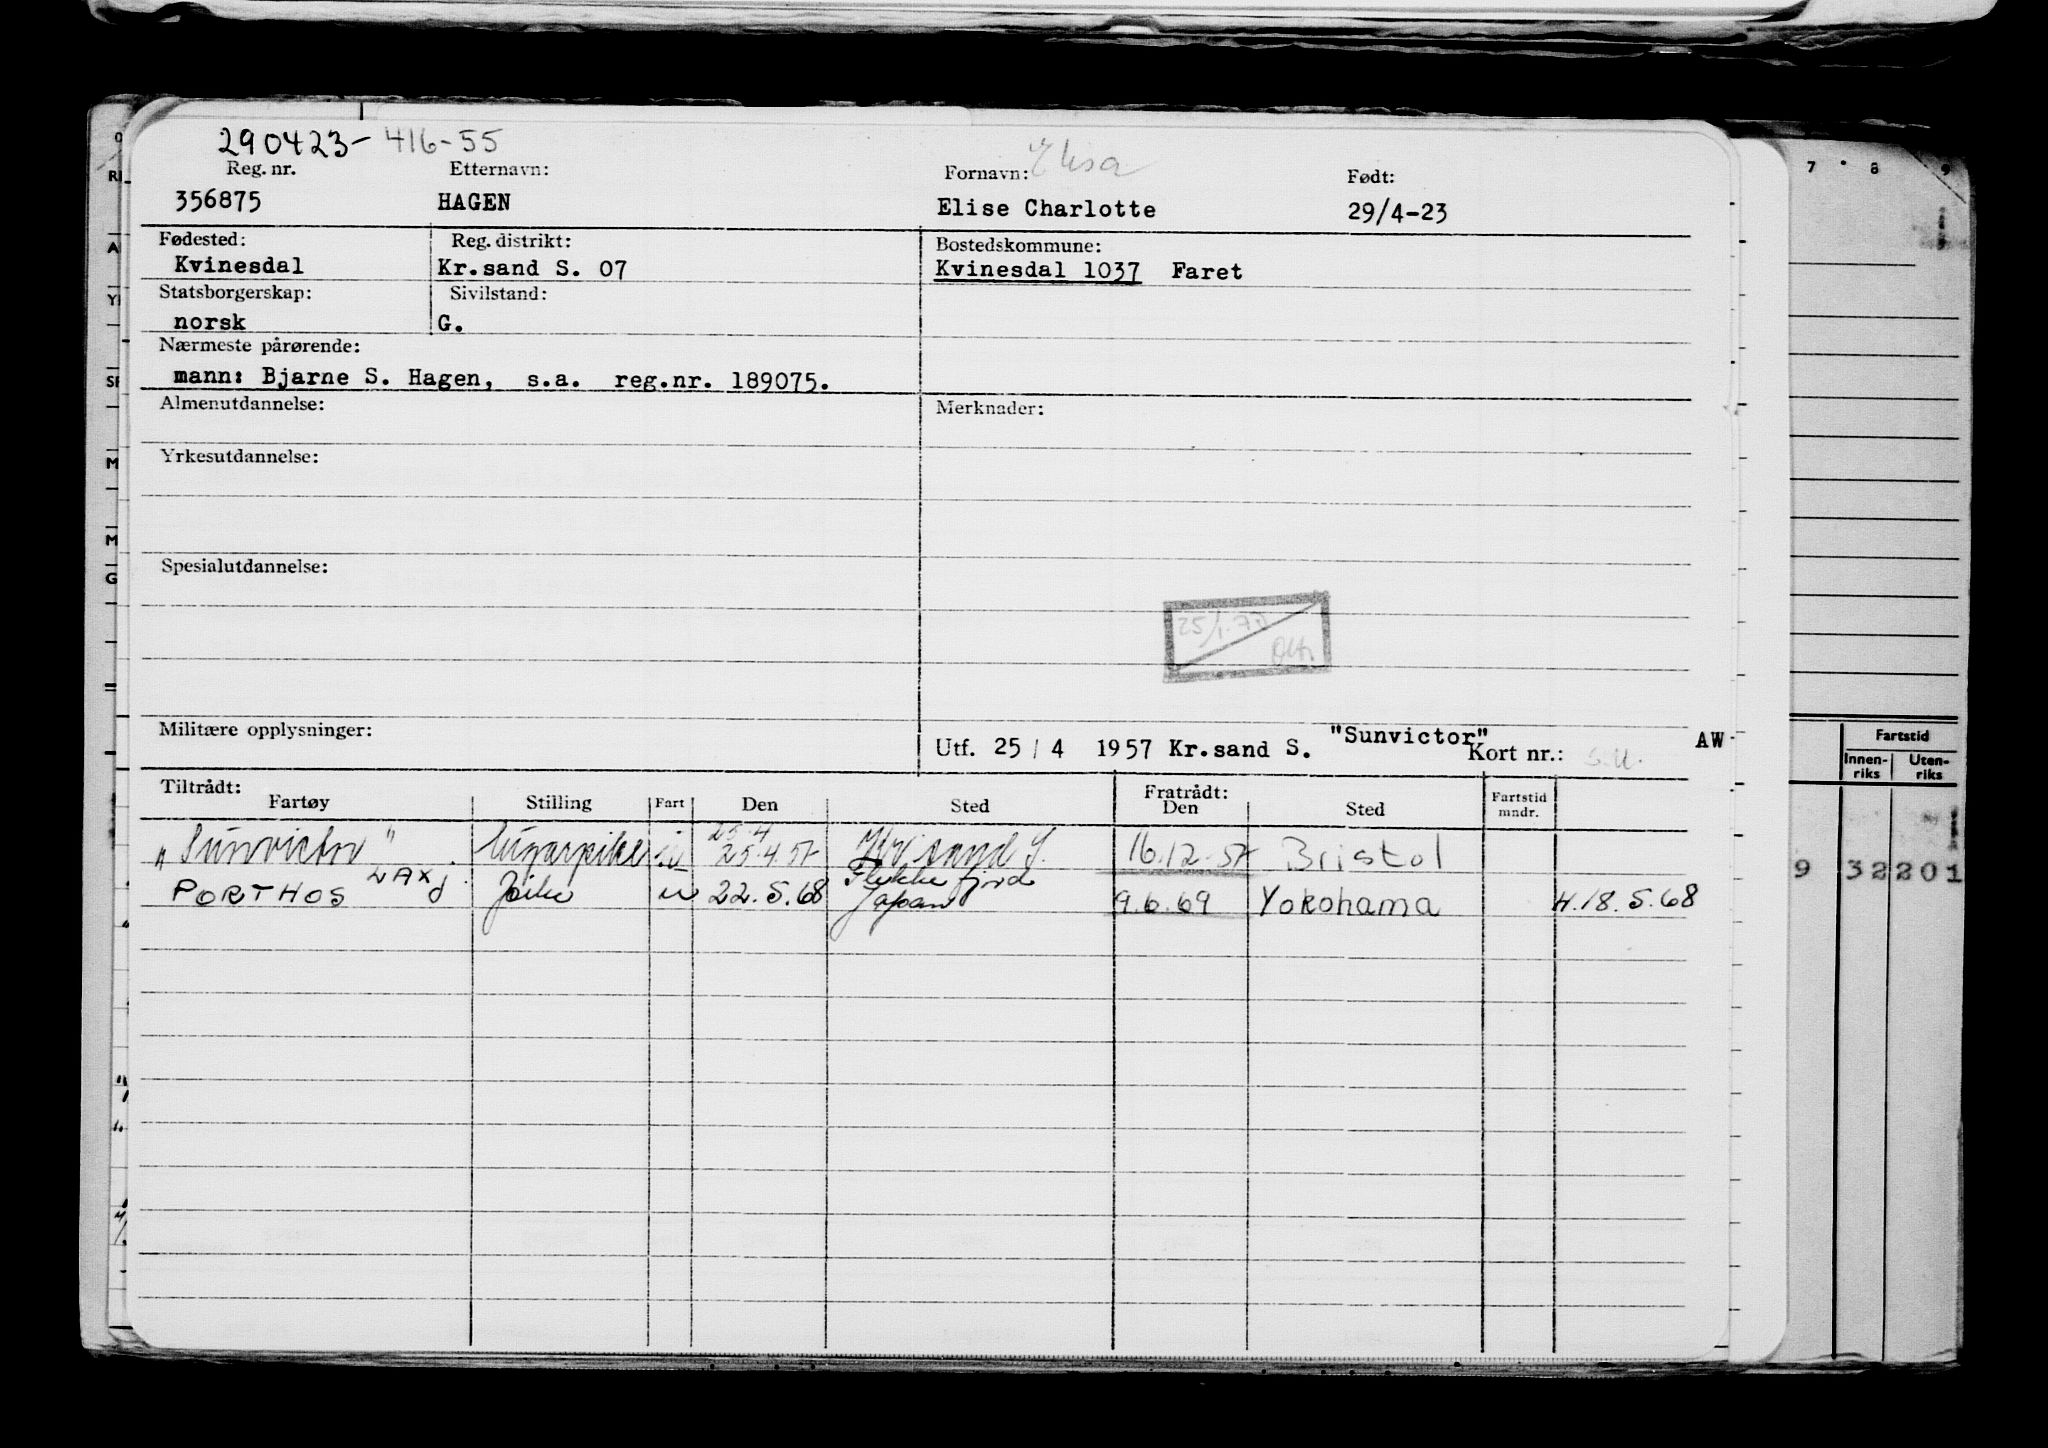 290423-416-55
Reg. nr. Etternavn: Fornavn: Elisa Født:
356875 HAGEN Elise Charlotte 29/4-23
Fødested: Reg. distrikt: Bostedskommune:
Kvinesdal Kr.sand S. 07 Kvinesdal 1037 Faret
Statsborgerskap: Sivilstand:
norsk G.
Nærmeste pårørende:
mann: Bjarne S. Hagen, s.a. reg.nr. 189075.
Almenutdannelse: Merknader:
Yrkesutdannelse:
Spesialutdannelse:
Militære opplysninger: Utf. 25/4 1957 Kr.sand S. "Sunvictor" Kort nr.: AW
Tiltrådt: Fratrådt:
Fartøy Stilling Fart Den Sted Den Sted Fartstid mndr.
25.4
"Sunvictor" lugarpike u 25.4.57 Kr.sand S. 16.12.57 Bristol
Flekkefjord
PORTHOS LAXJ Pike u 22.5.68 Japan 9.6.69 Yokohama H.18.5.68
7 8 9
Fartstid
Innen-riks Uten-riks
9 32201